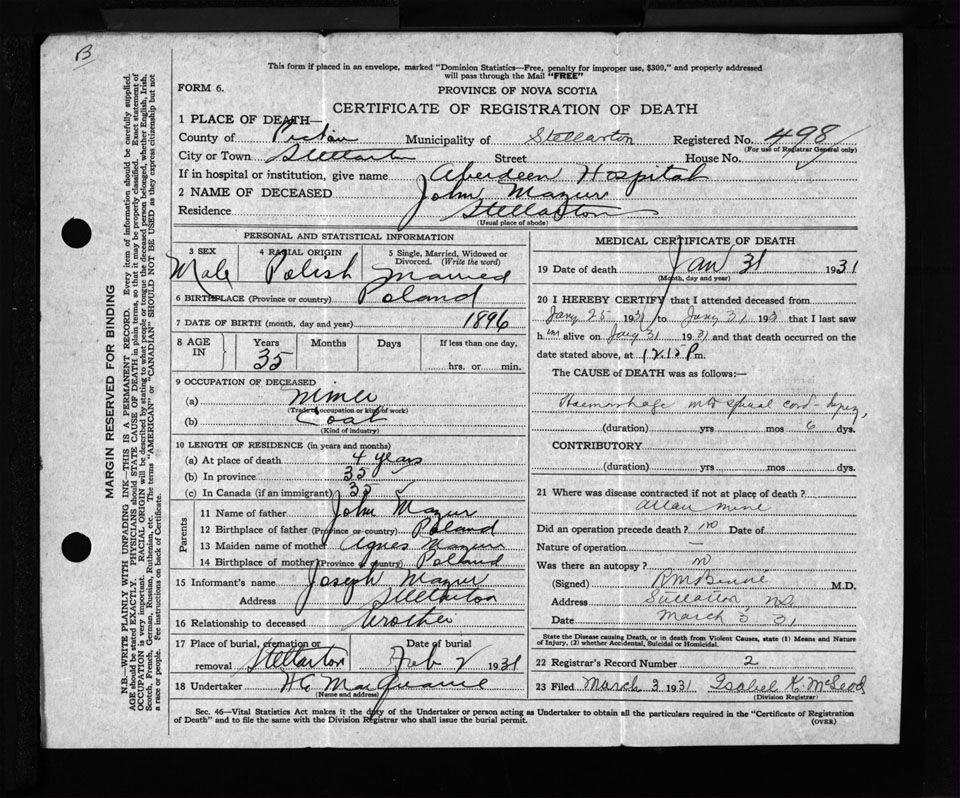 B
This form if placed in an envelope, marked "Dominion Statistics—Free, penalty for improper use, $300," and properly addressed
will pass through the Mail "FREE"
FORM 6.
PROVINCE OF NOVA SCOTIA
CERTIFICATE OF REGISTRATION OF DEATH
1 PLACE OF DEATH—
County of Pictou Municipality of Stellarton Registered No. 498
(For use of Registrar General only)
City or Town Stellarton Street House No.
If in hospital or institution, give name Aberdeen Hospital
2 NAME OF DECEASED John Mazur
Residence Stellarton
(Usual place of abode)
PERSONAL AND STATISTICAL INFORMATION
3 SEX 4 RACIAL ORIGIN 5 Single, Married, Widowed or Divorced. (Write the word)
Male Polish Married
6 BIRTHPLACE (Province or country) Poland
7 DATE OF BIRTH (month, day and year) 1896
8 AGE IN Years Months Days If less than one day,
35 hrs. or min.
9 OCCUPATION OF DECEASED
(a) Miner
(Trade, occupation or kind of work)
(b) Coal
(Kind of industry)
10 LENGTH OF RESIDENCE (in years and months)
(a) At place of death 4 years
(b) In province 35
(c) In Canada (if an immigrant) 35
Parents
11 Name of father John Mazur
12 Birthplace of father (Province or country) Poland
13 Maiden name of mother Agnes Mazur
14 Birthplace of mother (Province or country) Poland
15 Informant's name Joseph Mazur
Address Stellarton
16 Relationship to deceased Brother
17 Place of burial, cremation or removal Stellarton Date of burial Feb 2 1931
18 Undertaker H G MacQuarrie
(Name and address)
MEDICAL CERTIFICATE OF DEATH
19 Date of death Jan 31 1931
(Month, day and year)
20 I HEREBY CERTIFY that I attended deceased from
Jany 25 1931 to Jany 31 193 that I last saw
him alive on Jany 31 1931 and that death occurred on the
date stated above, at 12 15 P m.
The CAUSE of DEATH was as follows:—
Haemorrhage into spinal cord - injury,
(duration) yrs mos 6 dys.
CONTRIBUTORY
(duration) yrs. mos. dys.
21 Where was disease contracted if not at place of death?
Allan mine
Did an operation precede death? no Date of
Nature of operation —
Was there an autopsy? no
(Signed) M.D.
Address Stellarton, NS
Date March 3 31
State the Disease causing Death, or in death from Violent Causes, state (1) Means and Nature
of Injury, (2) whether Accidental, Suicidal or Homicidal.
22 Registrar's Record Number 2
23 Filed March 3 1931 Isabel K. McLeod
(Division Registrar)
Sec. 46—Vital Statistics Act makes it the duty of the Undertaker or person acting as Undertaker to obtain all the particulars required in the "Certificate of Registration
of Death" and to file the same with the Division Registrar who shall issue the burial permit.
(OVER)
MARGIN RESERVED FOR BINDING
N.B.—WRITE PLAINLY WITH UNFADING INK—THIS IS A PERMANENT RECORD. Every item of information should be carefully supplied.
AGE should be stated EXACTLY. PHYSICIANS should STATE CAUSE OF DEATH in plain terms, so that it may be properly classified. Exact statement of
OCCUPATION is very important. RACIAL ORIGIN will be described by stating to what people or tongue the deceased person belonged, whether English, Irish,
Scotch, French, German, Russian, Ruthenian, etc. The terms "AMERICAN" or "CANADIAN" SHOULD NOT BE USED as they express citizenship but not
a race or people. See instructions on back of Certificate.